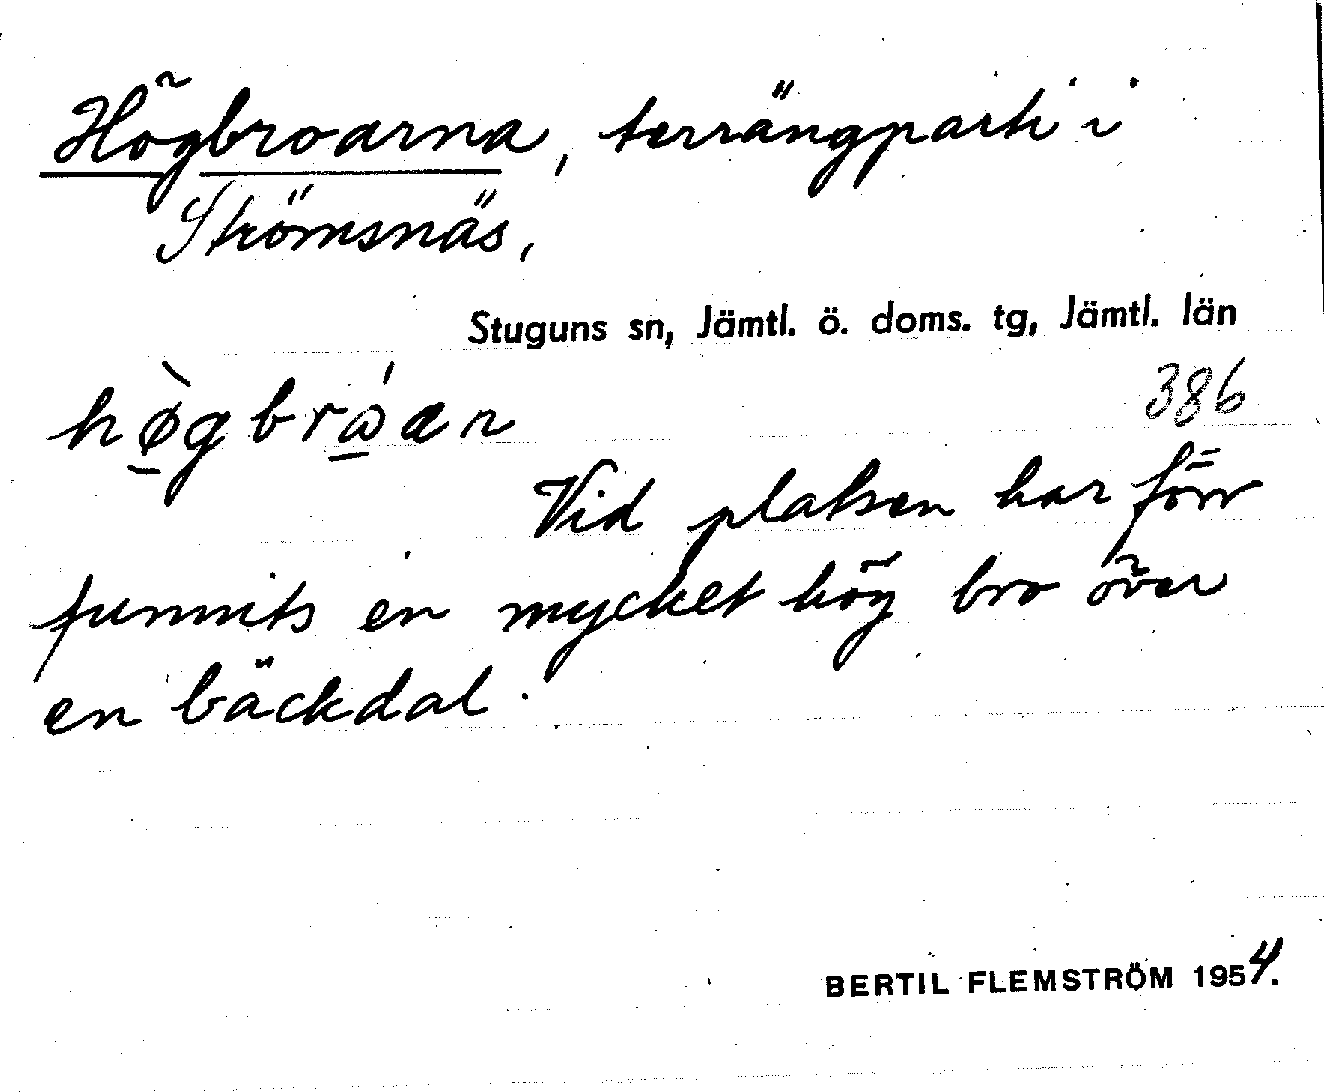 Högbroarna, terrängparti i
Strömsnäs,
Stuguns sn, Jämtl. ö. doms. tg, Jämtl. län
386
hø̀gbrɷ́ær
Vid platsen har förr
funnits en mycket hög bro över
en bäckdal.
BERTIL FLEMSTRÖM 1954.